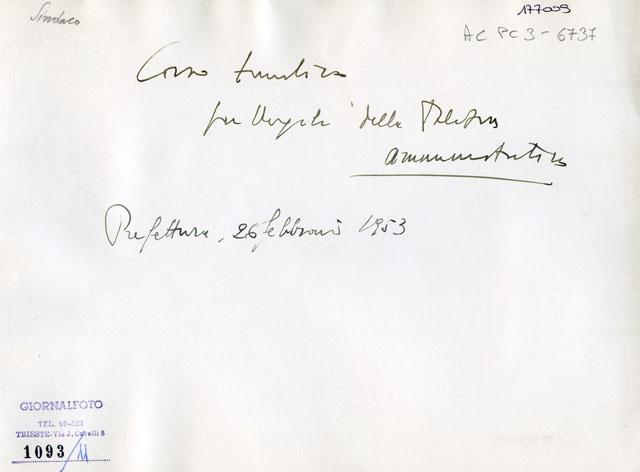 Sindaco
177009
AC PC 3 - 6737
Corso
per Vigili della
amministrativa
Prefettura, 26 febbraio 1953
GIORNALFOTO
TEL.
TRIESTE - Via J. Cavalli 8
1093/11